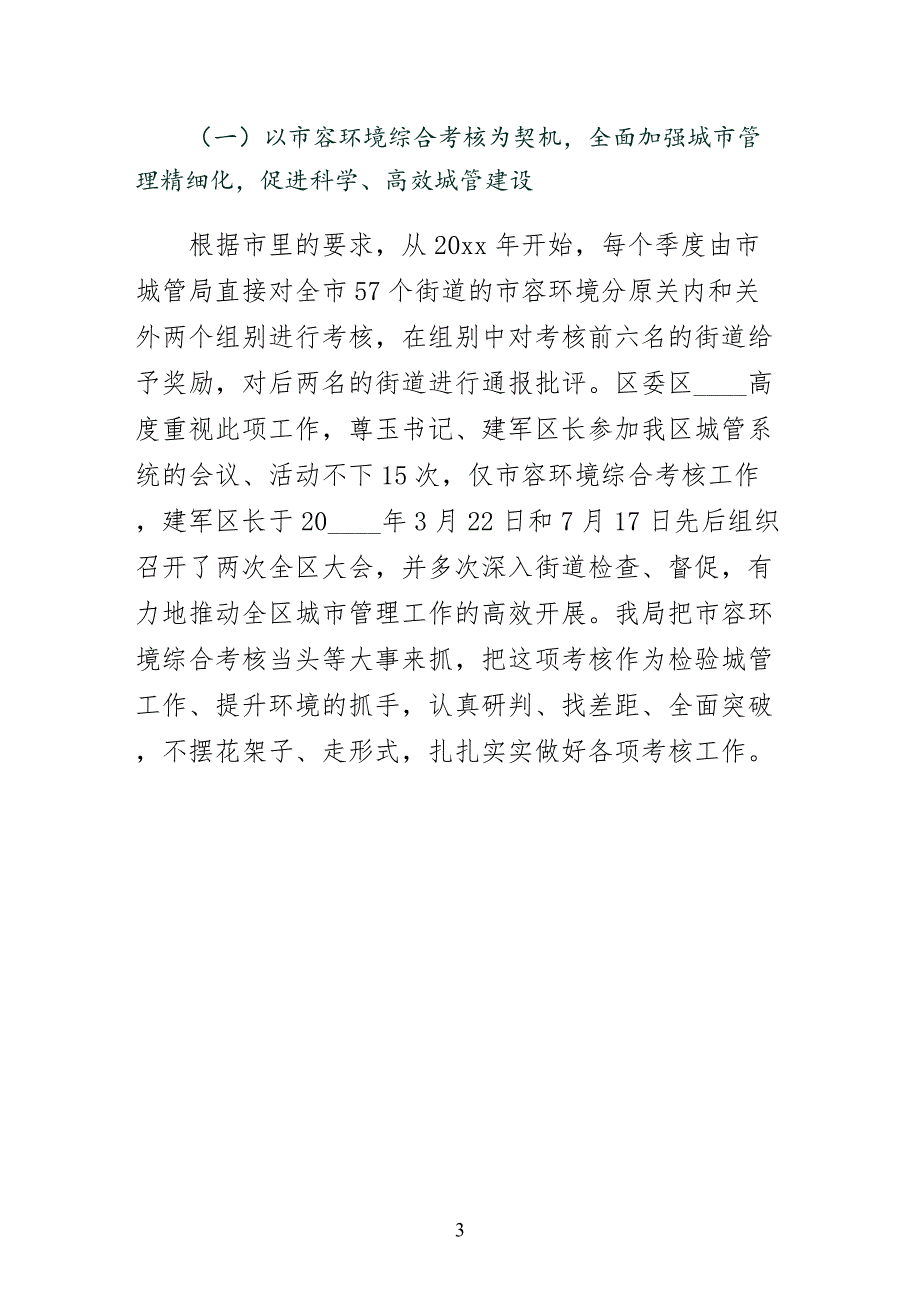 （一）以市容环境综合考核为契机，全面加强城市管
理精细化，促进科学、高效城管建设
根据市里的要求，从 20xx 年开始，每个季度由市
城管局直接对全市 57 个街道的市容环境分原关内和关
外两个组别进行考核，在组别中对考核前六名的街道给
予奖励，对后两名的街道进行通报批评。区委区____高
度重视此项工作，尊玉书记、建军区长参加我区城管系
统的会议、活动不下 15 次，仅市容环境综合考核工作
，建军区长于 20____年 3 月 22 日和 7 月 17 日先后组织
召开了两次全区大会，并多次深入街道检查、督促，有
力地推动全区城市管理工作的高效开展。我局把市容环
境综合考核当头等大事来抓，把这项考核作为检验城管
工作、提升环境的抓手，认真研判、找差距、全面突破
，不摆花架子、走形式，扎扎实实做好各项考核工作。
3